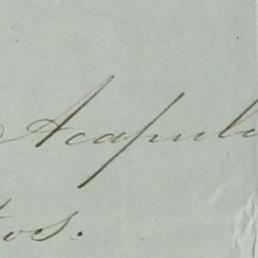 Acapulc
tos.